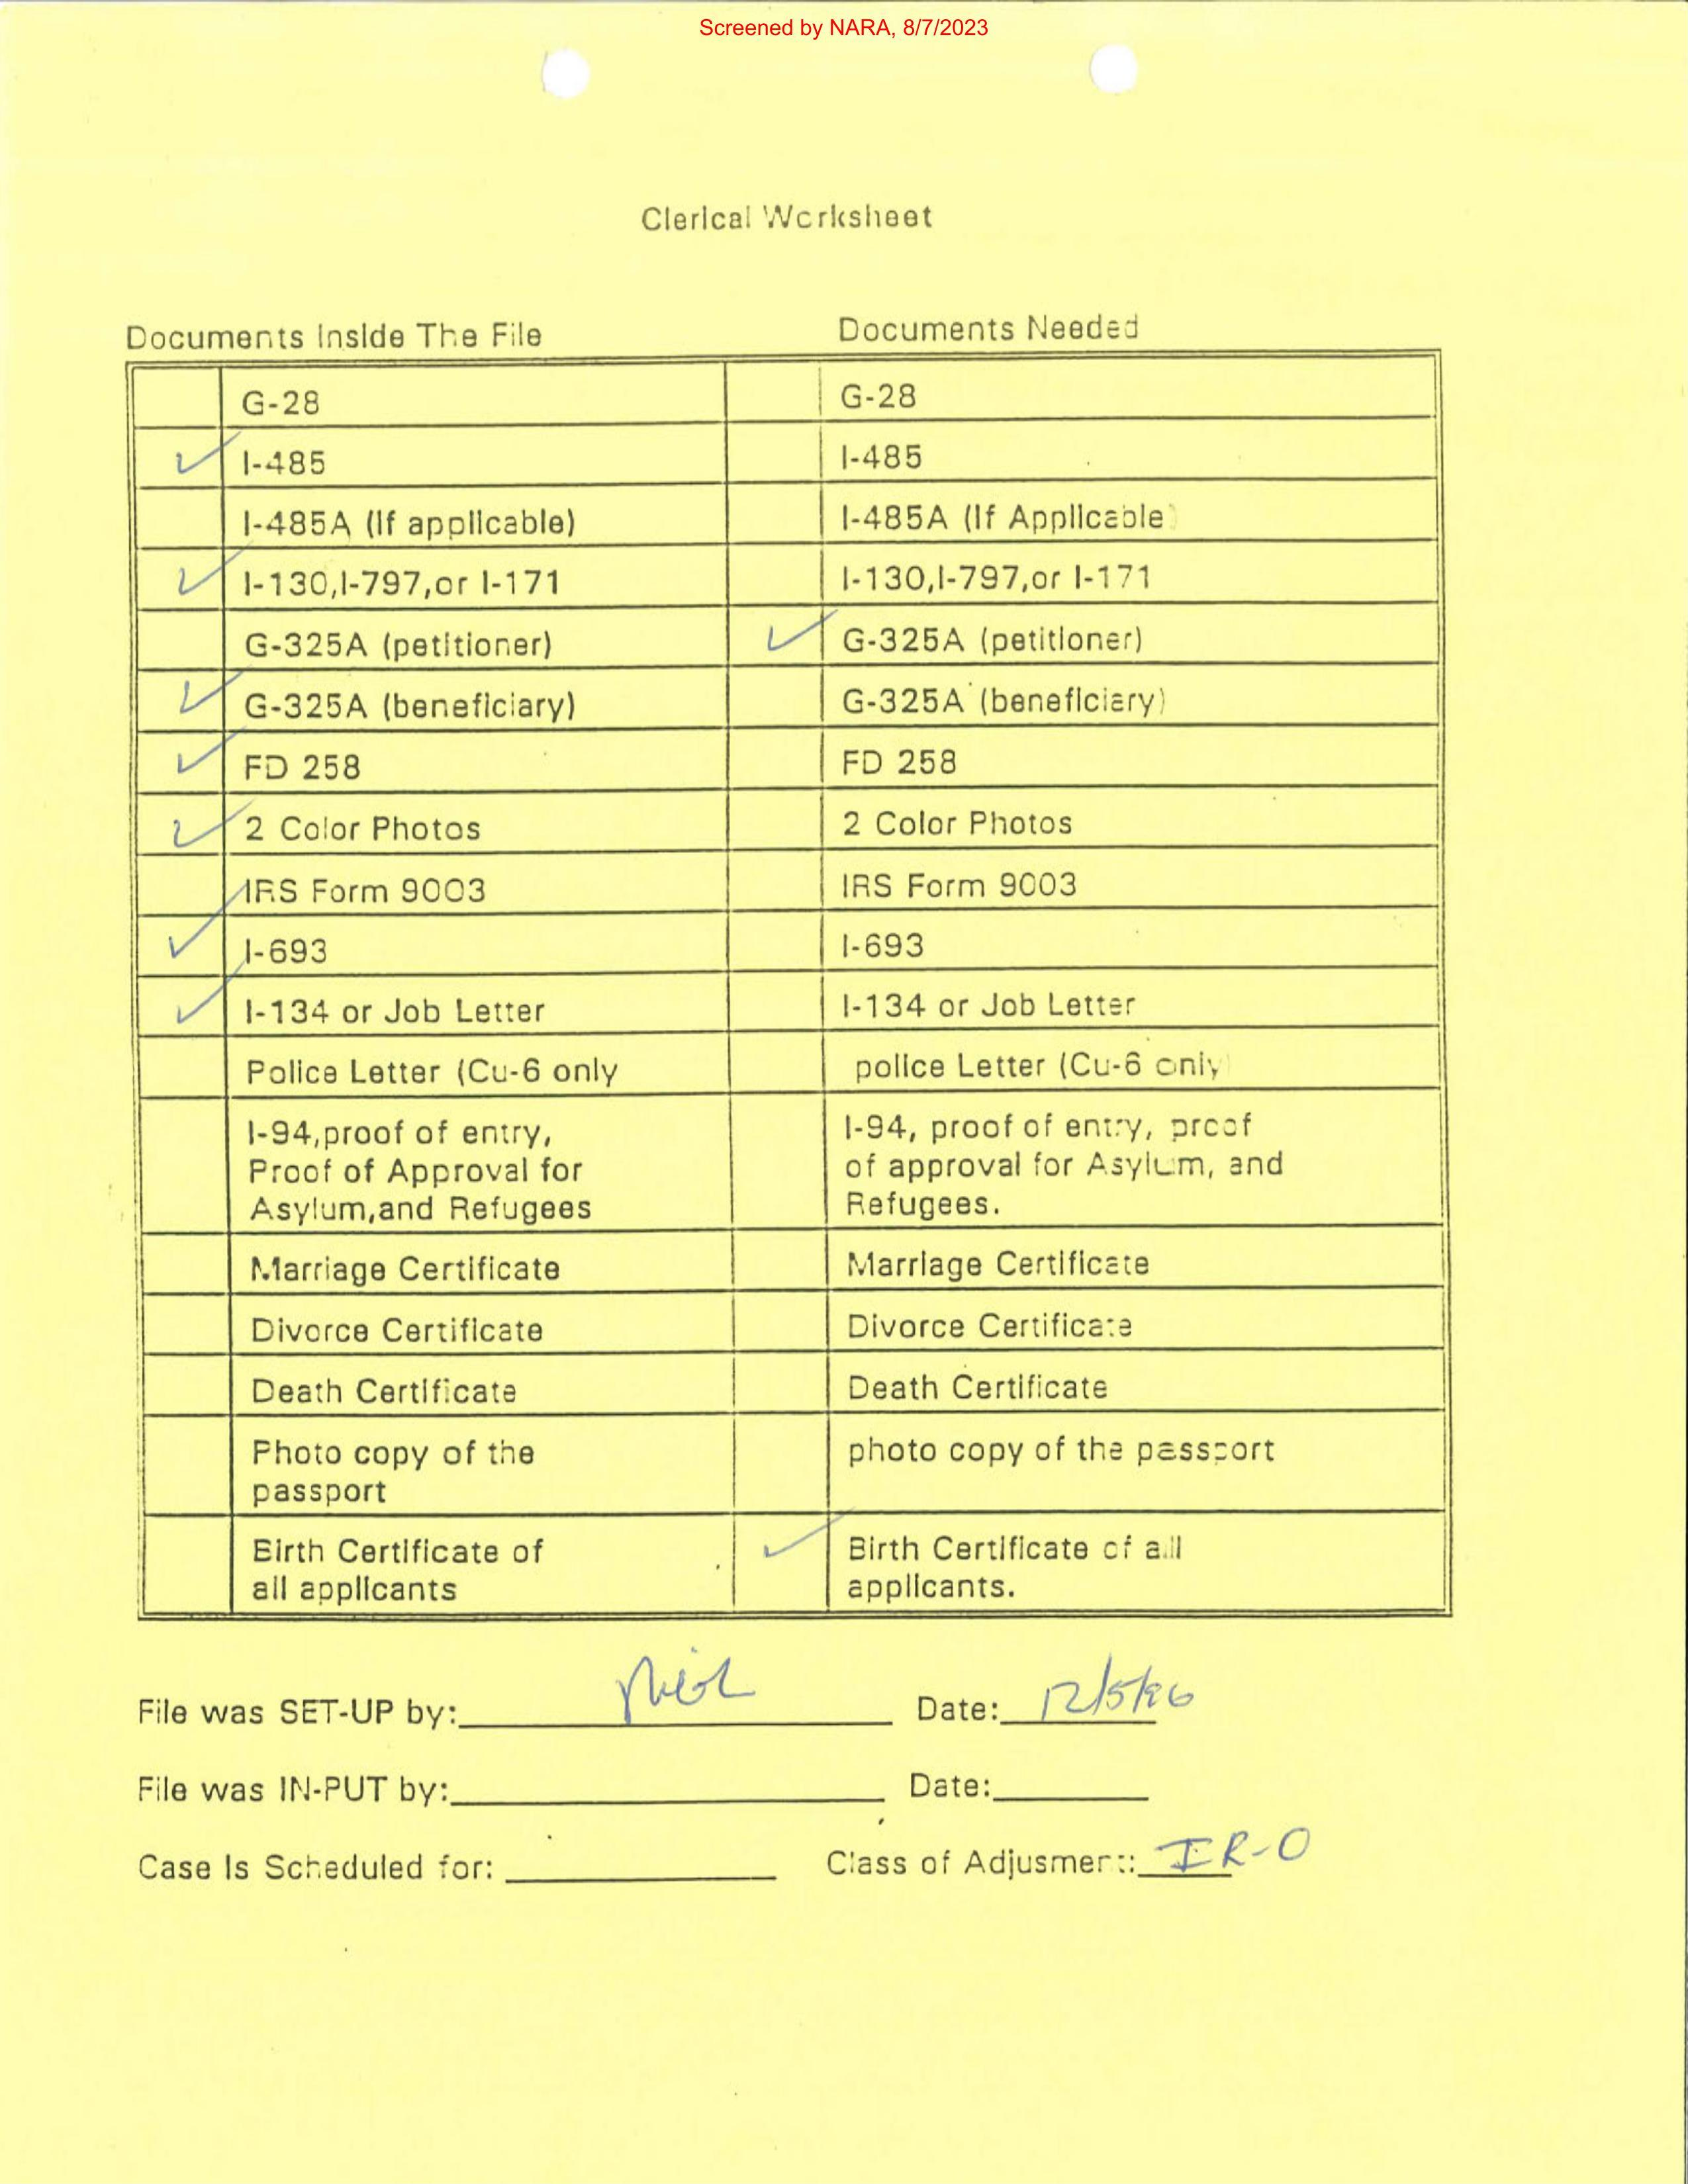 Screened by NARA, 8/7/2023
Clerical Worksheet
Documents Inside The File Documents Needed
G-28 G-28
✓ I-485 I-485
I-485A (If applicable) I-485A (If Applicable)
✓ I-130,I-797,or I-171 I-130,I-797,or I-171
G-325A (petitioner) ✓ G-325A (petitioner)
✓ G-325A (beneficiary) G-325A (beneficiary)
✓ FD 258 FD 258
✓ 2 Color Photos 2 Color Photos
IRS Form 9003 IRS Form 9003
✓ I-693 I-693
✓ I-134 or Job Letter I-134 or Job Letter
Police Letter (Cu-6 only police Letter (Cu-6 only)
I-94,proof of entry, I-94, proof of entry, proof
Proof of Approval for of approval for Asylum, and
Asylum,and Refugees Refugees.
Marriage Certificate Marriage Certificate
Divorce Certificate Divorce Certificate
Death Certificate Death Certificate
Photo copy of the photo copy of the passport
passport
Birth Certificate of ✓ Birth Certificate of all
all applicants applicants.
File was SET-UP by: Date: 12/5/96
File was IN-PUT by: Date:
Case Is Scheduled for: Class of Adjusment: IR-0